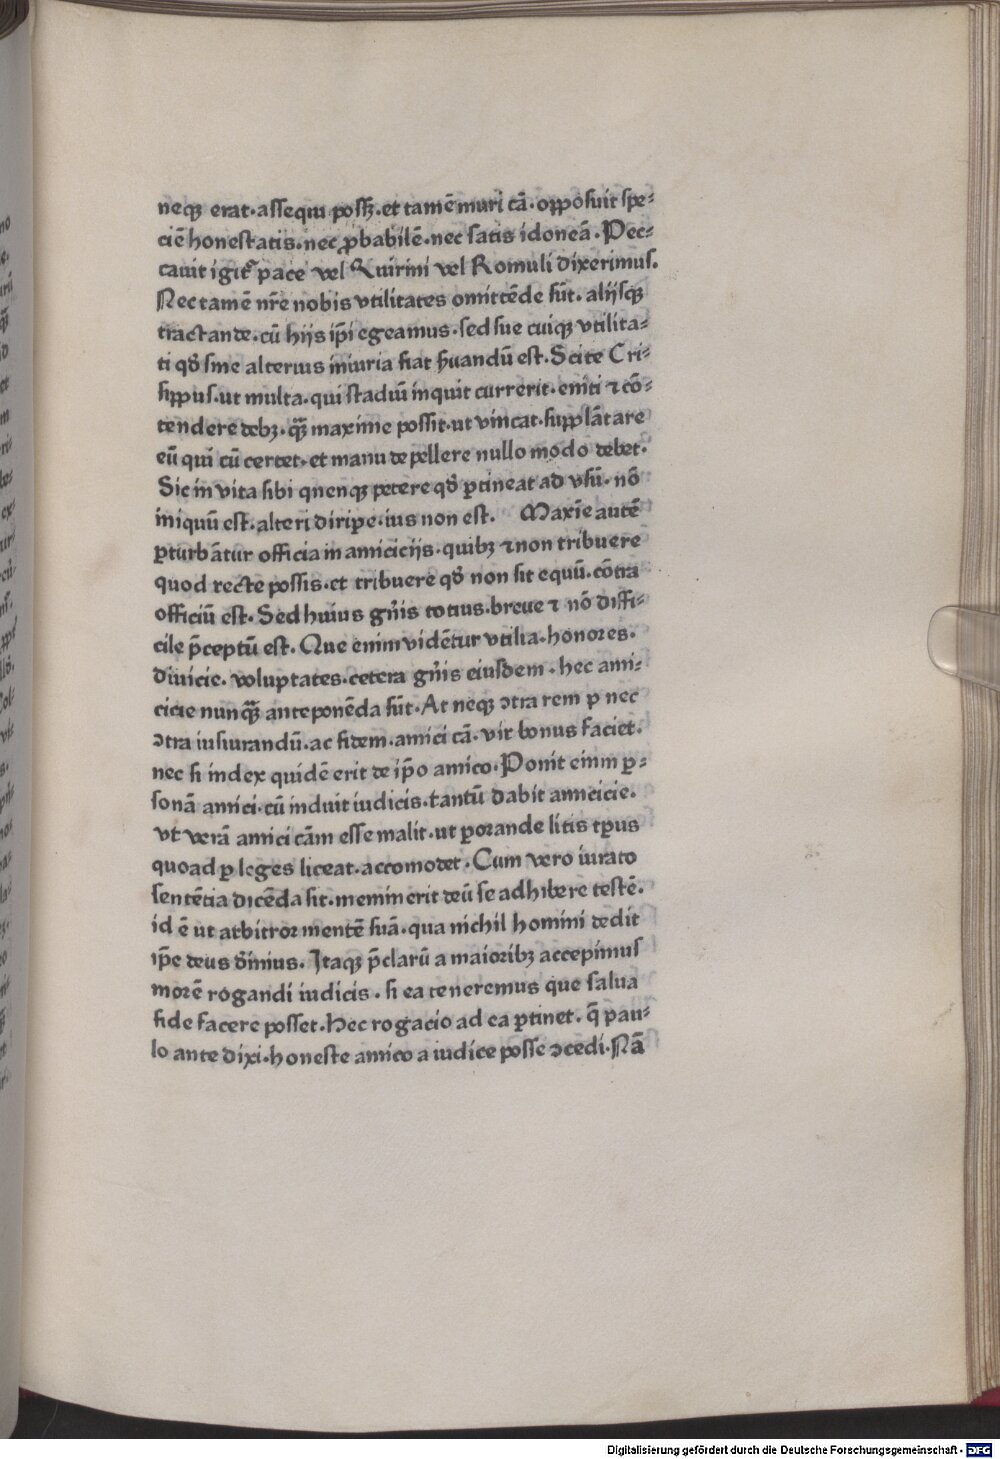 neqꝫ erat·assequi possꝫ·et tamē muri cā·opposuit spe⸗
ciē honestatis·nec ꝓbabilē·nec satis idoneā·Pec⸗
cauit igit᷑ pace vel Quirini vel Romuli dixerimus.
Nec tamē nr̄e nobis vtilitates omittēde sūt·aliisqꝫ
tractande·cū hijs ip̄i egeamus·sed sue cuiqꝫ vtilita⸗
ti qd̄ sine alterius iniuria fiat ẜuandū est·Scite Cri⸗
sippus·ut multa·qui stadiū inquit currerit·eniti ⁊ cō⸗
tendere debꝫ·qꝫ̄ maxime possit·ut vincat·supplātare
eū qui cū certet·et manu depellere nullo modo debet·
Sic in vita sibi quenqꝫ petere qd̄ ꝑtineat ad vsū·nō
iniquū est·alteri diriꝑe·ius non est. Maxīe autē
ꝑturbātur officia in amicicijs·quibꝫ ⁊ non tribuere
quod recte possis·et tribuere qd̄ non sit equū·cōtra
officiū est·Sed huius gn̄is totius·breue ⁊ nō diffi⸗
cile p̄ceptū est·Que enim vidētur vtilia·honores·
diuicie·voluptates·cetera gn̄is eiusdem·hec ami⸗
cicie nunqꝫ̄ anteponēda sūt·At neqꝫ ꝯtra rem p nec
ꝯtra iusiurandū·ac fidem·amici cā·vir bonus faciet·
nec si index quidē erit de ip̄o amico·Ponit enim ꝑ⸗
sonā amici·cū induit iudicis·tantū dabit amicicie·
vt verā amici cām esse malit·ut ꝑorande litis tp̄us
quoad ꝑ leges liceat·accomodet·Cum vero iurato
sentētia dicēda sit·meminerit deū se adhibere testē·
id ē ut arbitror mentē suā·qua nichil homini dedit
ip̄e deus diuius·Itaqꝫ p̄clarū a maioribꝫ accepimus
morē rogandi iudicis·si ea teneremus que salua
fide facere posset·Hec rogacio ad ea ꝑtinet·q̄ pau⸗
lo ante dixi·honeste amico a iudice posse ꝯcedi·Nā
Digitalisierung gefördert durch die Deutsche Forschungsgemeinschaft - DFG